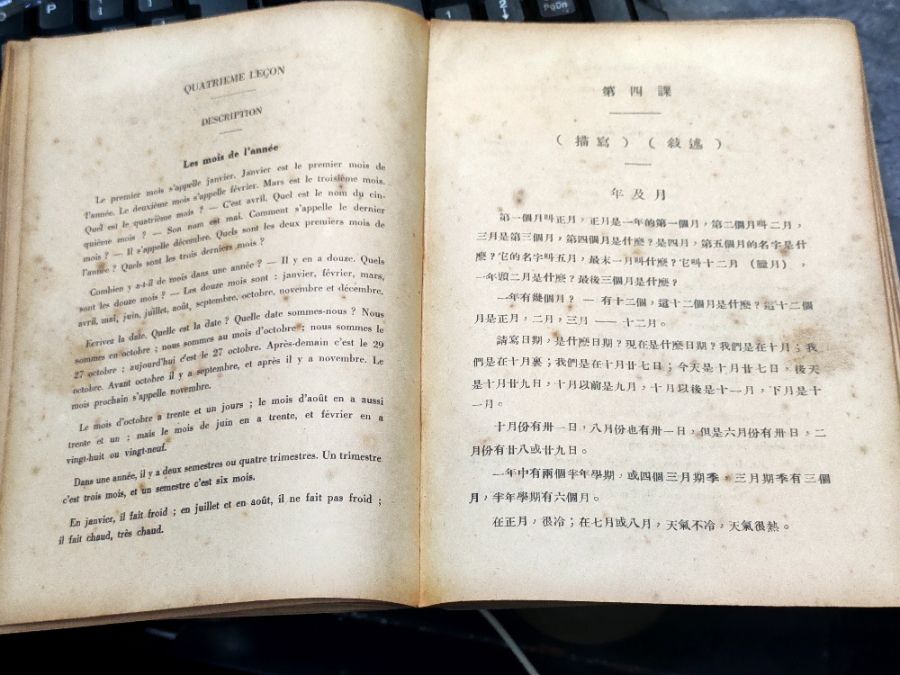 QUATRIEME LEÇON
DESCRIPTION
Les mois de l'année
Le premier mois s'appelle janvier. Janvier est le premier mois de
l'année. Le deuxième mois s'appelle février. Mars est le troisième mois.
Quel est le quatrième mois ? — C'est avril. Quel est le nom du cin-
quième mois ? — Son nom est mai. Comment s'appelle le dernier
mois ? — Il s'appelle décembre. Quels sont les deux premiers mois de
l'année ? Quels sont les trois derniers mois ?
Combien y a-t-il de mois dans une année ? — Il y en a douze. Quels
sont les douze mois ? — Les douze mois sont : janvier, février, mars,
avril, mai, juin, juillet, août, septembre, octobre, novembre et décembre.
Ecrivez la date. Quelle est la date ? Quelle date sommes-nous ? Nous
sommes en octobre ; nous sommes au mois d'octobre ; nous sommes le
27 octobre ; aujourd'hui c'est le 27 octobre. Après-demain c'est le 29
octobre. Avant octobre il y a septembre, et après il y a novembre. Le
mois prochain s'appelle novembre.
Le mois d'octobre a trente et un jours ; le mois d'août en a aussi
trente et un ; mais le mois de juin en a trente, et février en a
vingt-huit ou vingt-neuf.
Dans une année, il y a deux semestres ou quatre trimestres. Un trimestre
c'est trois mois, et un semestre c'est six mois.
En janvier, il fait froid ; en juillet et en août, il ne fait pas froid ;
il fait chaud, très chaud.
第四課
（描寫）（敍述）
年及月
第一個月叫正月，正月是一年的第一個月，第二個月叫二月，
三月是第三個月，第四個月是什麼？是四月，第五個月的名字是什
麼？它的名字叫五月，最末一月叫什麼？它叫十二月（臘月），
一年頭二月是什麼？最後三個月是什麼？
一年有幾個月？— 有十二個，這十二個月是什麼？這十二個
月是正月，二月，三月 —— 十二月。
請寫日期，是什麼日期？現在是什麼日期？我們是在十月；我
們是在十月裏；我們是在十月廿七日；今天是十月廿七日，後天
是十月廿九日，十月以前是九月，十月以後是十一月，下月是十
一月。
十月份有卅一日，八月份也有卅一日，但是六月份有卅日，二
月份有廿八或廿九日。
一年中有兩個半年學期，或四個三月期季，三月期季有三個
月，半年學期有六個月。
在正月，很冷；在七月或八月，天氣不冷，天氣很熱。